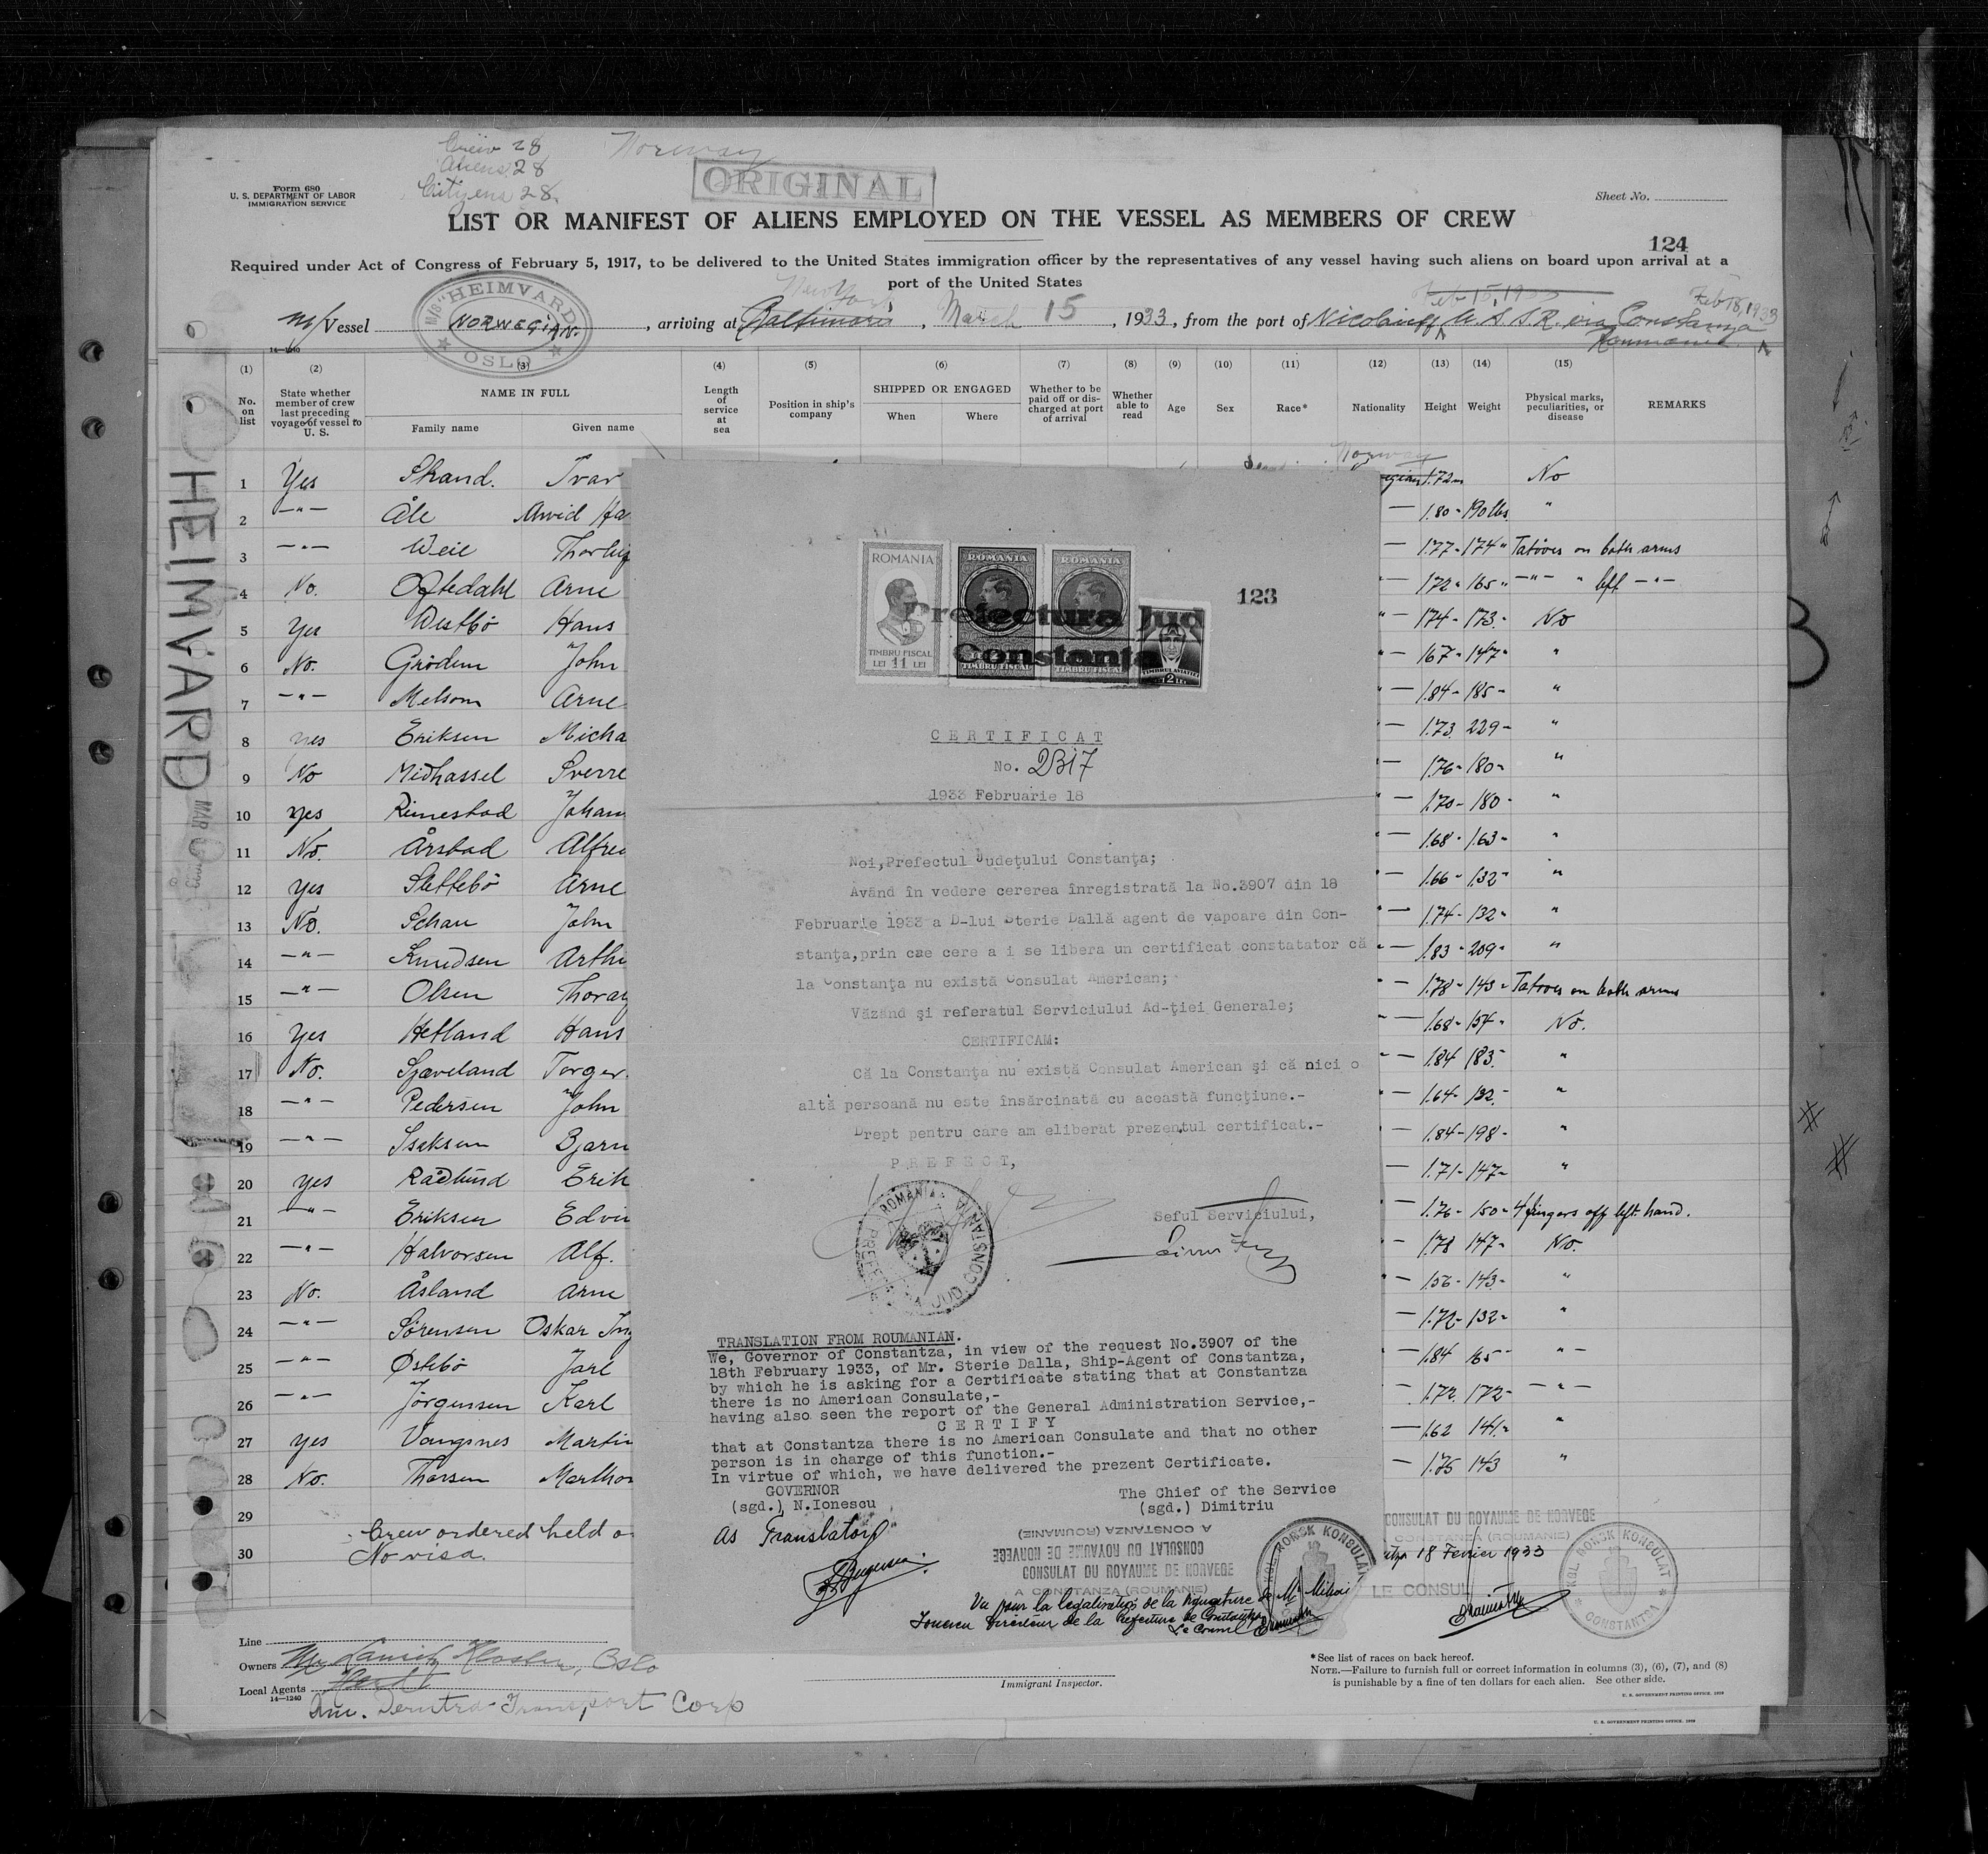 Crew 28
Aliens 28
Citizens 28
Norway
ORIGINAL
Form 680
U. S. DEPARTMENT OF LABOR
IMMIGRATION SERVICE
Sheet No.
LIST OR MANIFEST OF ALIENS EMPLOYED ON THE VESSEL AS MEMBERS OF CREW
124
Required under Act of Congress of February 5, 1917, to be delivered to the United States immigration officer by the representatives of any vessel having such aliens on board upon arrival at a
port of the United States
New York
Feb 15, 1933
Feb 18, 1933
M/S "HEIMVARD"
NORWEGIAN.
OSLO
M/Vessel , arriving at Baltimore , March 15 , 1933, from the port of Nicolaieff U.S.S.R. via Constanza
Roumania.
14—1240
(1) (2) (3) (4) (5) (6) (7) (8) (9) (10) (11) (12) (13) (14) (15)
No. on list
State whether member of crew last preceding voyage of vessel to U. S.
NAME IN FULL
Family name Given name
Length of service at sea
Position in ship's company
SHIPPED OR ENGAGED
When Where
Whether to be paid off or discharged at port of arrival
Whether able to read
Age
Sex
Race*
Nationality
Height
Weight
Physical marks, peculiarities, or disease
REMARKS
HEIMVARD
Norway
1 Yes Strand. Ivar 1.72 m No
2 —"— Åle Arvid Ha — 1.80 - 190 lbs. "
3 —"— Weie — 1.77 - 174 " Tatoves on both arms
4 No. Oftedahl Arne — 172 " 165 " —"— " left —"—
5 Yes Westbö Hans " — 174 - 173. No
6 No. Grödem John " — 167 - 147 " "
7 —"— Melsom Arne " — 1.84 - 185 - "
8 yes Eriksen Micha " — 1.73. 229 - "
9 No Midhassel Sverre " — 1.76 - 180 - "
10 yes Rimestad Johan " — 1.70 - 180 - "
11 No. Årsbad Alfred " — 1.68 - 163 - "
12 yes Slettebö Arne " — 1.66 - 132 - "
13 No. Schau John " — 1.74 - 132 - "
14 —"— Knudsen Arthu " — 1.83 - 209 - "
15 —"— Olsen " — 1.78 - 143 - Tatoves on both arms
16 yes Hetland Hans " — 1.68 - 154 - No.
17 No. Sjaveland Torger. " — 1.84 183. "
18 —"— Pedersen John " — 1.64 - 132. "
19 —"— Iseksen Bjarn — 1.84 - 198 - "
20 yes Radlund Erik — 1.71 - 147 - "
21 —"— Eriksen Edvin — 1.76 - 150 - 4 fingers off left hand.
22 —"— Halvorsen Alf. — 1.78 147 - No.
23 No. Åsland Arne " — 1.56 - 143 - "
24 —"— Sörensen Oskar Ing — 1.72 - 132 - "
25 —"— Östebö Jarl — 1.84 165 - " —
26 —"— Jörgensen Karl — 1.72. 172 - —"—
27 yes Vangsnes Martin — 1.62 141 - "
28 No. Thorsen — 1.75 143 "
29
30
Crew ordered held o
No visa.
Line
Owners Oslo
Local Agents
14—1240
Am. Derutra Transport Corp
Immigrant Inspector.
* See list of races on back hereof.
NOTE.—Failure to furnish full or correct information in columns (3), (6), (7), and (8)
is punishable by a fine of ten dollars for each alien. See other side.
U. S. GOVERNMENT PRINTING OFFICE
U. S. GOVERNMENT PRINTING OFFICE
ROMANIA
TIMBRU FISCAL
LEI 11 LEI
ROMANIA
TIMBRU FISCAL
ROMANIA
TIMBRU FISCAL
2 LEI
Prefectura Jud
Constanța
123
CERTIFICAT
No. 2317
1933 Februarie 18
Noi,Prefectul Județului Constanța;
Având în vedere cererea înregistrată la No.3907 din 18
Februarie 1933 a D-lui Sterie Dallă agent de vapoare din Con-
stanța,prin cae cere a i se libera un certificat constatator că
la Constanța nu există Consulat American;
Văzând și referatul Serviciului Ad-ției Generale;
CERTIFICAM:
Că la Constanța nu există Consulat American și că nici o
altă persoană nu este însărcinată cu această funcțiune.-
Drept pentru care am eliberat prezentul certificat.-
PREFECT,
Seful Serviciului,
ROMANIA
CONSTANTA
TRANSLATION FROM ROUMANIAN.
We, Governor of Constantza, in view of the request No.3907 of the
18th February 1933, of Mr. Sterie Dalla, Ship-Agent of Constantza,
by which he is asking for a Certificate stating that at Constantza
there is no American Consulate,-
having also seen the report of the General Administration Service,-
CERTIFY
that at Constantza there is no American Consulate and that no other
person is in charge of this function.-
In virtue of which, we have delivered the prezent Certificate.
GOVERNOR The Chief of the Service
(sgd.) N.Ionescu (sgd.) Dimitriu
As Translator
A CONSTANZA (ROUMANIE)
CONSULAT DU ROYAUME DE NORVEGE
CONSULAT DU ROYAUME DE NORVEGE
A CONSTANZA (ROUMANIE)
Vu pour la legalisation de la signature de Mr Mihai
Ionescu Directeur de la Prefecture de Constantza
Le Consul
KGL. NORSK KONSULAT
CONSULAT DU ROYAUME DE NORVEGE
CONSTANZA (ROUMANIE)
18 Fevrier 1933
LE CONSUL
KGL. NORSK KONSULAT
CONSTANTSA